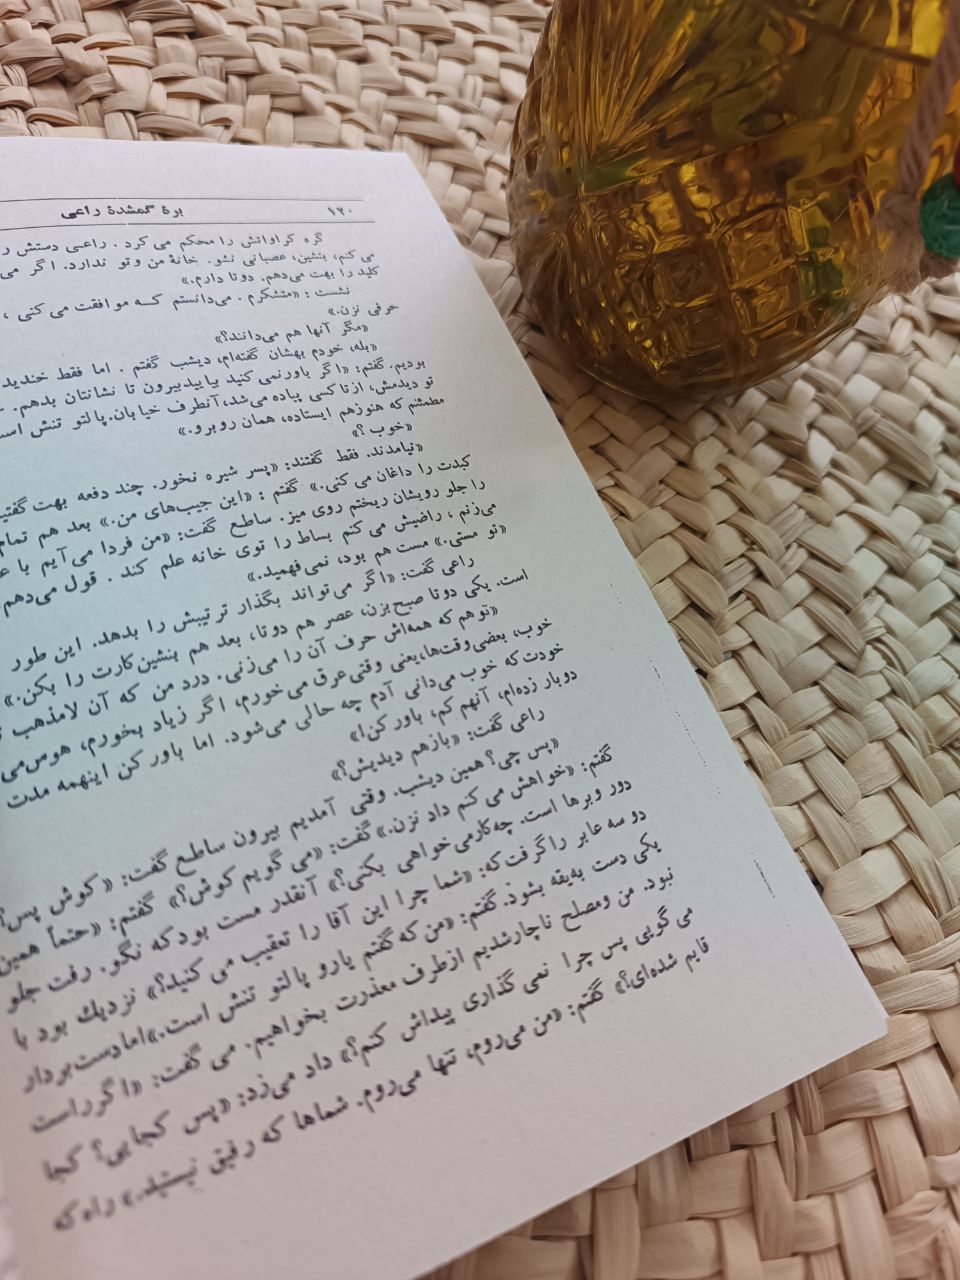 ۱۲۰ برهٔ گمشدهٔ راعی
گره کراواتش را محکم می کرد . راعی دستش ر
می کنم، بنشین، عصبانی نشو. خانهٔ من و تو ندارد. اگر می
کلید را بهت می‌دهم. دوتا دارم.»
نشست : «متشکرم . می‌دانستم کــه موافقت می کنی ،
حرفی نزن.»
«مگر آنها هم می‌دانند؟»
«بله، خودم بهشان گفته‌ام، دیشب گفتم . اما فقط خندید
بودیم. گفتم: «اگر باور نمی کنید بیایید بیرون تا نشانتان بدهم.
تو دیدمش، از تاکسی پیاده می‌شد، آنطرف خیابان. پالتو تنش است
مطمئنم که هنوز هم ایستاده، همان روبرو.»
«خوب ؟»
«نیامدند. فقط گفتند: «پسر شیره نخور. چند دفعه بهت گفتیم
کبدت را داغان می کنی.» گفتم : «این جیب‌های من.» بعد هم تمام
را جلو رویشان ریختم روی میز. ساطع گفت: «من فردا می‌آیم با
می‌زنم ، راضیش می کنم بساط را توی خانه علم کند . قول می‌دهم
«تو مستی.» مست هم بود، نمی‌فهمید.»
راعی گفت: «اگر می‌تواند بگذار ترتیبش را بدهد. این طور
است. یکی دوتا صبح بزن، عصر هم دوتا، بعد هم بنشین کارت را بکن.»
«تو هم که همه‌اش حرف آن را می‌زنی. درد من که آن لامذهب
خوب، بعضی وقت‌ها، یعنی وقتی عرق می‌خورم، اگر زیاد بخورم، هوس می
خودت که خوب می‌دانی آدم چه حالی می‌شود. اما باور کن اینهمه مدت
دوبار زده‌ام، آنهم کم، باور کن!»
راعی گفت: «بازهم دیدیش؟»
«پس چی؟ همین دیشب. وقتی آمدیم بیرون ساطع گفت: «کوش پس؟
گفتم: «خواهش می کنم داد نزن.» گفت: «می گویم کوش؟» گفتم: «حتماً همین
دور وبرها است. چه‌کار می‌خواهی بکنی؟» آنقدر مست بود که نگو. رفت جلو
دو سه عابر را گرفت که: «شما چرا این آقا را تعقیب می کنید؟» نزدیك بود با
یکی دست به‌یقه بشود. گفتم: «من که گفتم یارو پالتو تنش است.» اما دست بردار
نبود. من ومصلح ناچار شدیم از طرف معذرت بخواهیم. می گفت: «اگر راست
می گویی پس چرا نمی گذاری پیداش کنم؟» داد می‌زد: «پس کجایی؟ کجا
قایم شده‌ای؟» گفتم: «من می‌روم، تنها می‌روم. شماها که رفیق نیستید.» راه که